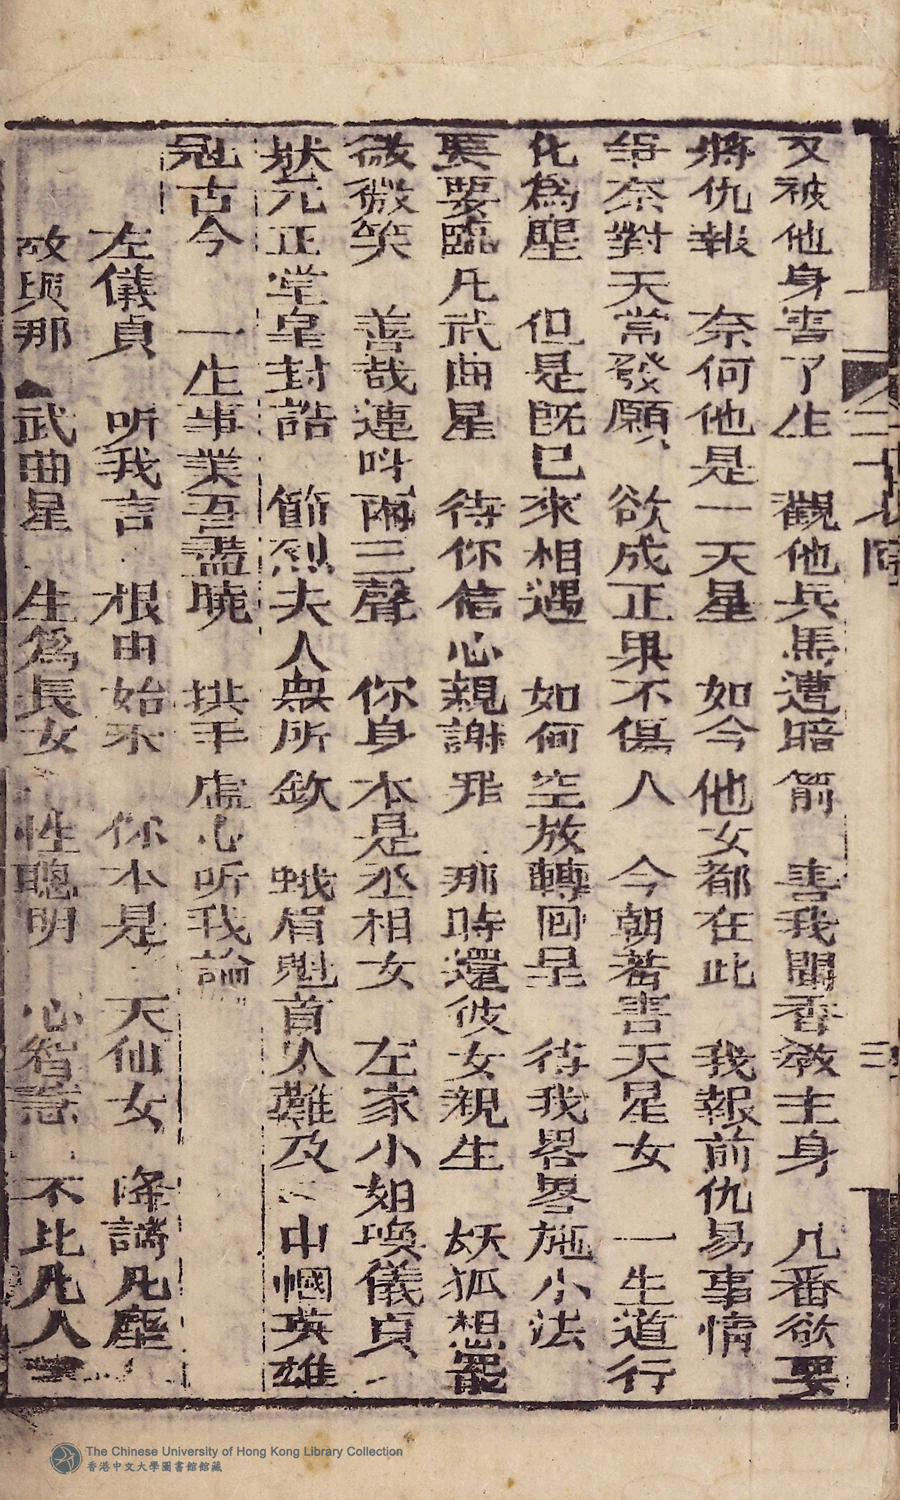 又被他身害了生　觀他兵馬遭暗箭　害我聞香教主身　几番欲要
將仇報　奈何他是一天星　如今他女都在此　我報前仇易事情
爭奈對天常發願、欲成正果不傷人　今朝若害天星女　一生道行
化為塵　但是既已來相遇　如何空放轉回呈　待我畧畧施小法
要要臨凡武曲星　待你信心親謝罪　那時還彼女親生　妖狐想罷
微微笑　善哉連叫兩三聲　你身本是丞相女　左家小姐喚儀貞
狀元正堂皇封誥　節烈夫人無所欽　蛾眉魁首人難及　巾幗英雄
冠古今　一生事業吾盡曉　拱手虛心听我論
左儀貞　听我言　根由始末　你本是　天仙女　降謫凡塵
故與那　武曲星　生為長女　性聰明　心智慧　不比凡人
三
The Chinese University of Hong Kong Library Collection
香港中文大學圖書館館藏